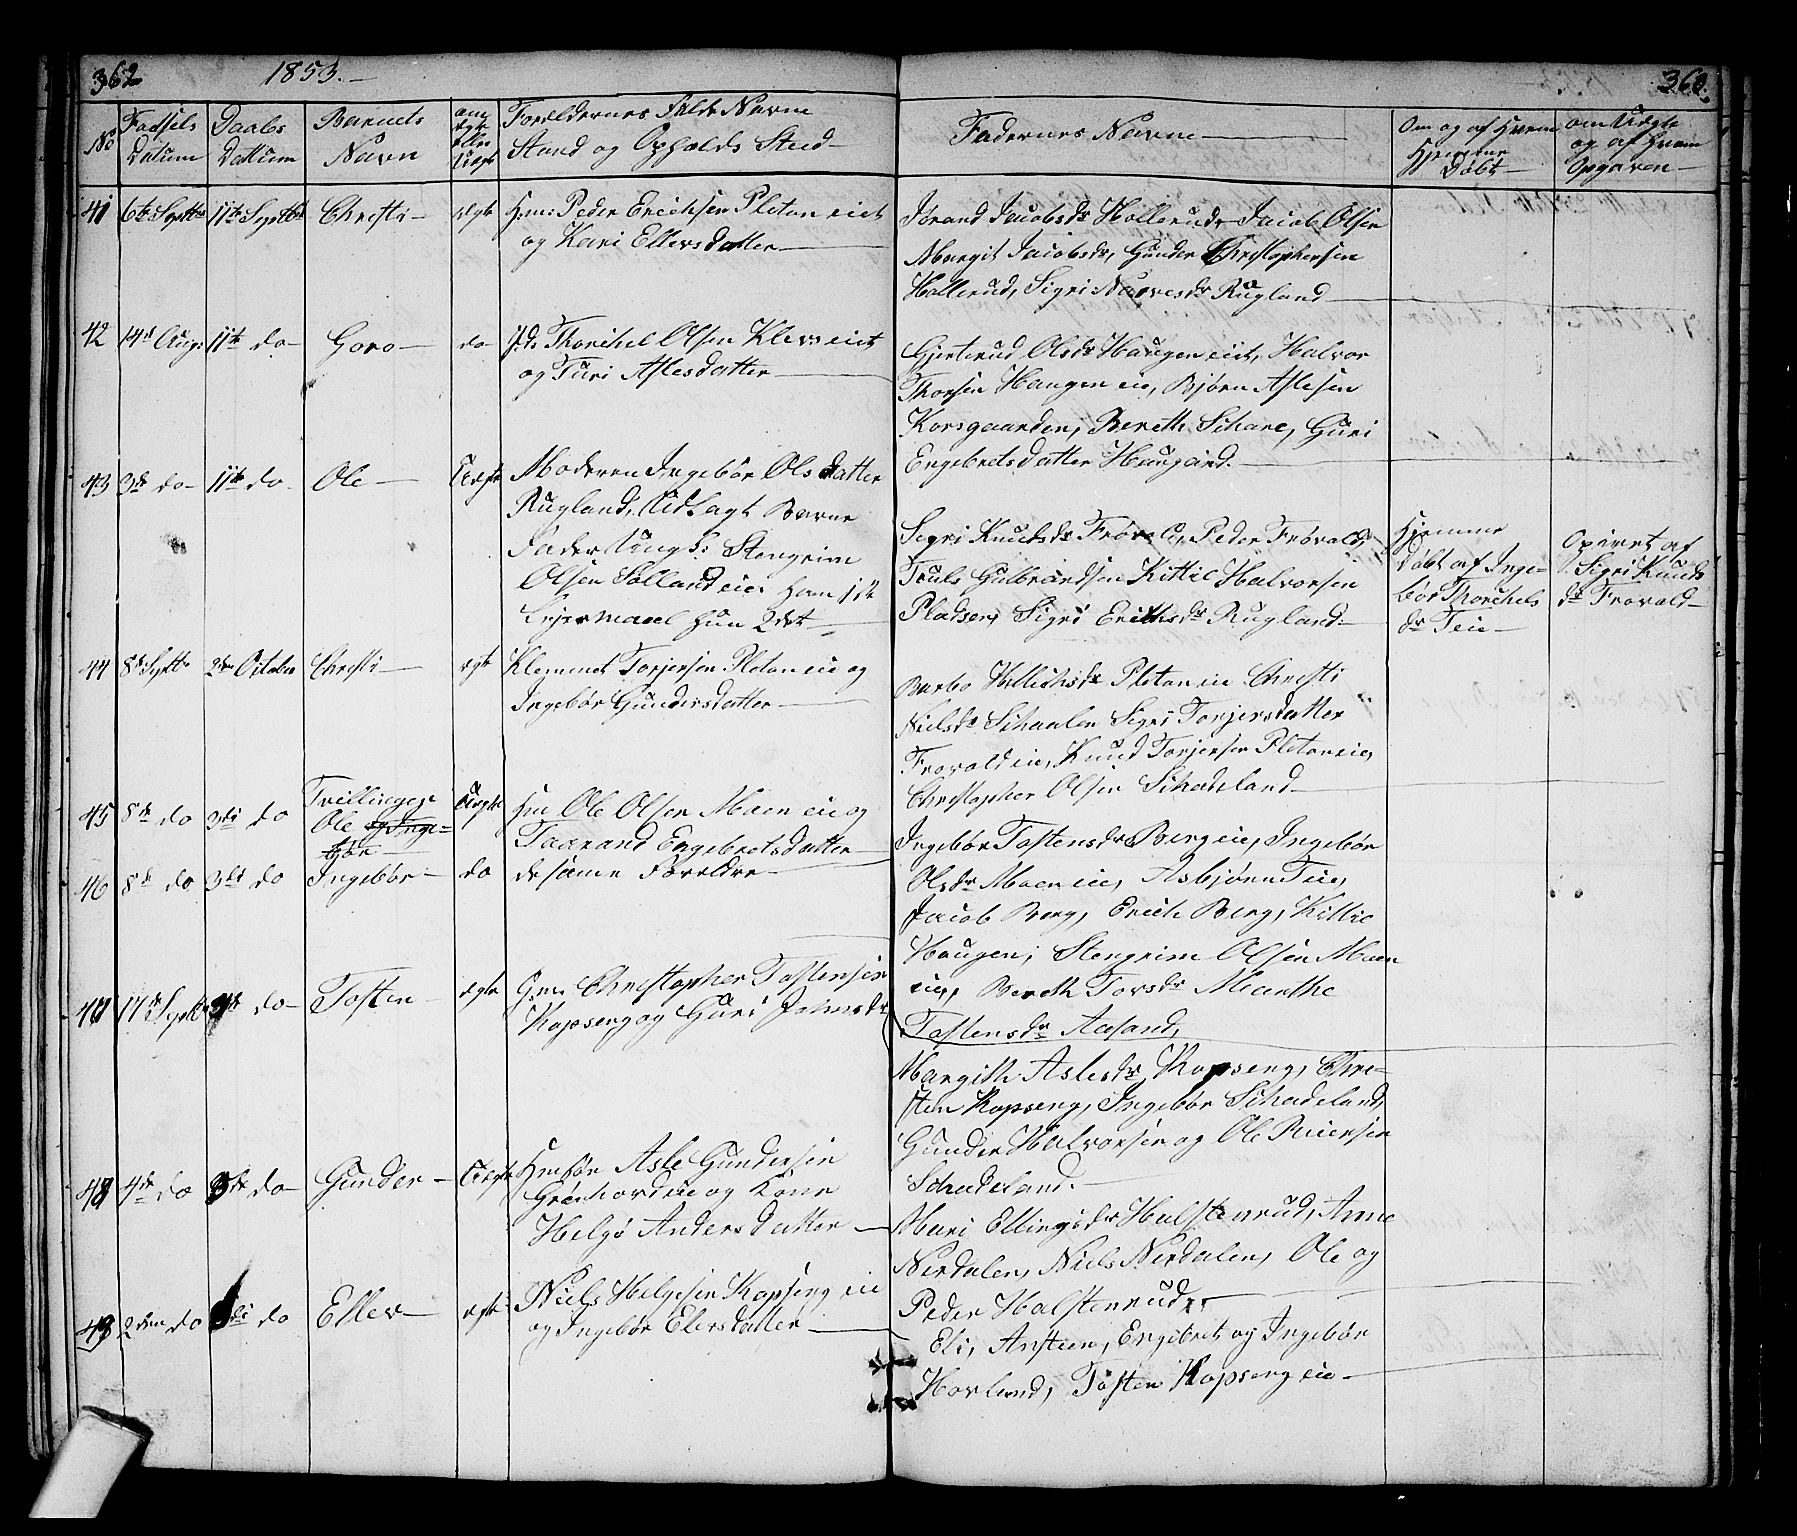 362 1853.
363.
No
Fødsels Datum
Daabs Dattum
Barnets Navn
om ægte eller Uægt
Foreldernes Fulde Navne
Stand og Opholds Sted
Fadernes Navne
Om og af Hvem Hjemme Døbt
om Uægte og af Hvem Opgiven
41 6te Septbr 11te Septbr Christi ægte Hm: Peder Erichsen Pletan eiet
og Kari Ellersdatter
Jørand Jacobsdr Hollerud, Jacob Olsen
Margit Jacobsdr, Gunder Christophersen
Hollerud, Sigri Narvesdr Rugland
42 14d Aug: 11te do Goro do Thorchel Olsen Klevs eiet
og Turi Aslesdatter
Gjertrud Olsdr Haugen eiet, Halvor
Thorsen Haugen eie, Bjørn Aslesen
Korsgaarden, Bereth Schare, Guri
Engebretsdatter Haugand.
43 3de do 11te do Ole Uægte Moderen Ingebør Olsdatter
Rugland, Udlagt Barne
Fader Ungk: Stengrim
Olsen Sølland eie, Ham 1st
Leiermaal hun 2det
Segri Knudsdr Frøvold, Peder Frøvold,
Truls Gulbrandsen Kittil Halvorsen
Pladsen, Sigri Erichsdr Rugland
Hjemme
Døbt af Inge-
bør Thorchels
dr Teie
Opivet af
Sigri Knuds
dr Frovold
44 8de Septbr 2den October Christi ægte Klemmet Torjersen Pletan eie og
Ingebør Gundersdatter
Barbo Hellichsdr Pletan eie Christi
Nielsdr Schaalen Segri Torjersdatter
Frovold eie, Knud Torjersen Pletan eie,
Christopher Olsen Schadeland
45 8de do 3di do Tvillinger
Ole og Inge-
bør
Uægte Hm Ole Olsen Moen eie og
Taarand Engebretsdatter
46 8de do 3di do Ingebør do de same Foreldre
Ingebør Tostensdr Berg eie, Ingebør
Olsdr Moen eie, Asbjørn Teie,
Jacob Berg, Erich Berg, Kittil
Haugen, Stengrim Olsen Moen
eie, Bereth Torsdr Marthe
Tostensdr Aasand,
47 17de Septbr do Tosten ægte Gm. Christopher Tostensen
Kopseng og Guri Johnsdr
Margith Aslesdr Kopseng, Chri-
sten Kopseng, Ingebør Schadeland,
Gunder Halvorsen og Ole Reiersen
Schadeland.
48 4de do do Gunder Uægte Hmsør Asle Gundersen
Grønhovd eie og Kone
Helgø Andersdatter
Mari Ellingsdr Halstenrud, Anne
Nerdalen, Niels Nerdalen, Ole og
Peder Halstenrud
49 2den do do Eller ægte Niels Helgesen Kopseng eie
og Ingebør Elersdatter
Eli, Ansteen, Engebret og Ingebør
Hovland, Tosten Kopseng eie